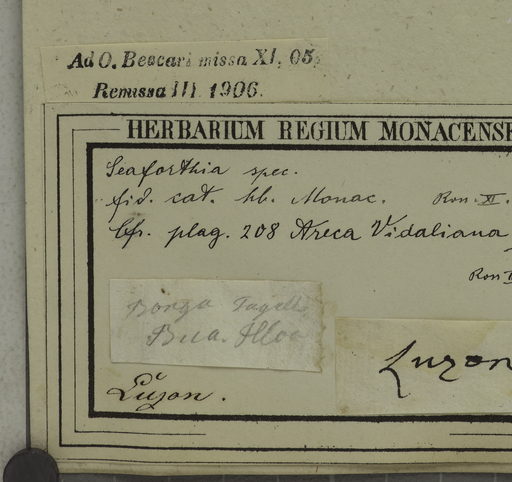 Ad O. Beccari missa XI, 05,
Remissa III. 1906.
HERBARIUM REGIUM MONACENSE
Seaforthia spec.
fid. cat. hb. Monac. Ron. XI.
Cfr. plag. 208 Areca Vidaliana
Ron
Bonga
Bua. Iloc
Luzon
Lŭzon.